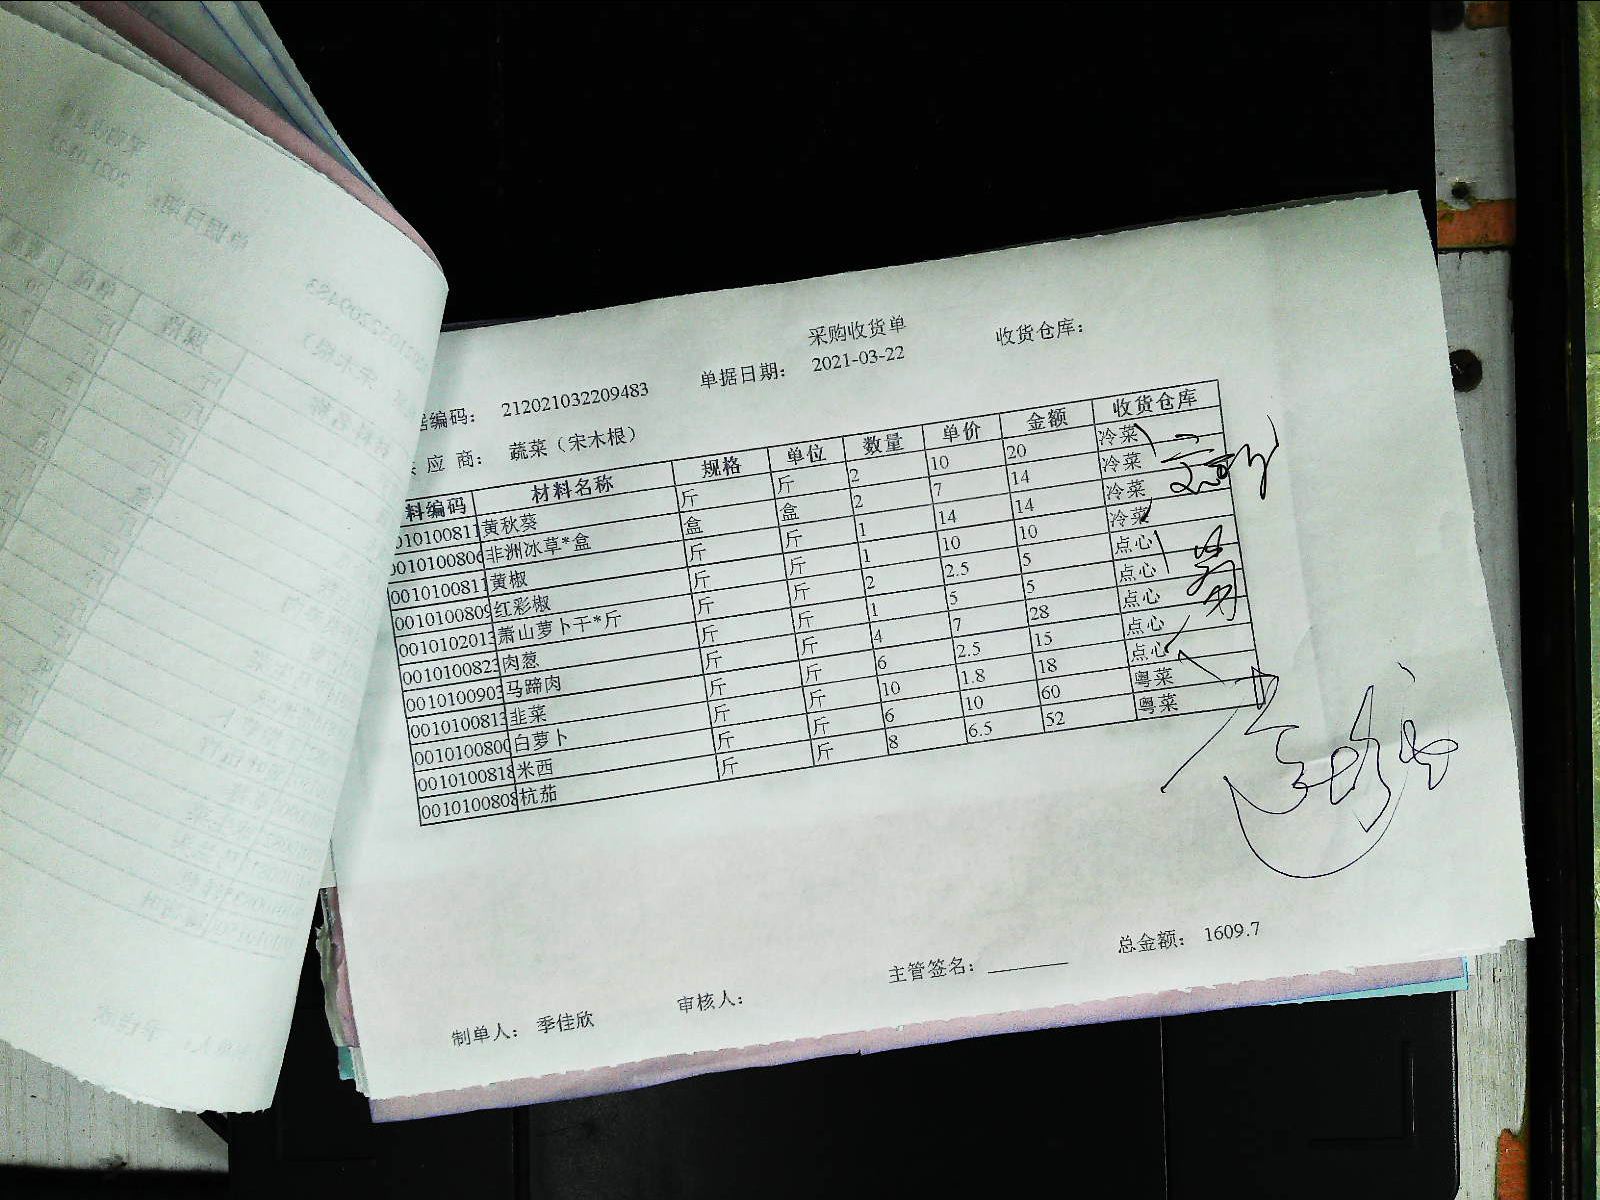 采购收货单
编码： 212021032209483 单据日期： 2021-03-22 收货仓库：
应 商： 蔬菜（宋木根）
料编码 材料名称 规格 单位 数量 单价 金额 收货仓库
010100811 黄秋葵 斤 斤 2 10 20 冷菜
010100806 非洲冰草*盒 盒 盒 2 7 14 冷菜
0010100811 黄椒 斤 斤 1 14 14 冷菜
0010100809 红彩椒 斤 斤 1 10 10 冷菜
0010102013 萧山萝卜干*斤 斤 斤 2 2.5 5 点心
0010100823 肉葱 斤 斤 1 5 5 点心
0010100903 马蹄肉 斤 斤 4 7 28 点心
0010100813 韭菜 斤 斤 6 2.5 15 点心
0010100800 白萝卜 斤 斤 10 1.8 18 点心
0010100818 米西 斤 斤 6 10 60 粤菜
0010100808 杭茄 斤 斤 8 6.5 52 粤菜
制单人： 季佳欣 审核人： 主管签名： 总金额： 1609.7